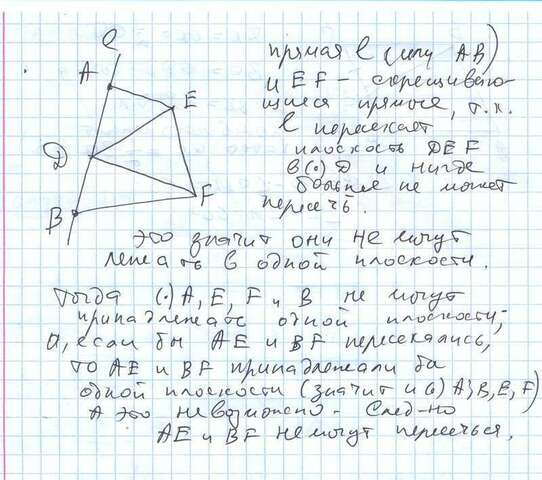 ℓ
A
E
D
B
F
прямая ℓ (или AB)
и EF - скрещиваю-
щиеся прямые, т.к.
ℓ пересекает
плоскость DEF
в (·) D и нигде
больше не может
пересечь.
Это значит они не могут
лежать в одной плоскости.
Тогда (·) A, E, F и B не могут
принадлежать одной плоскости;
а, если бы AE и BF пересекались,
то AE и BF принадлежали бы
одной плоскости (значит и (·) A, B, E, F)
А это невозможно - След-но
AE и BF не могут пересечься.